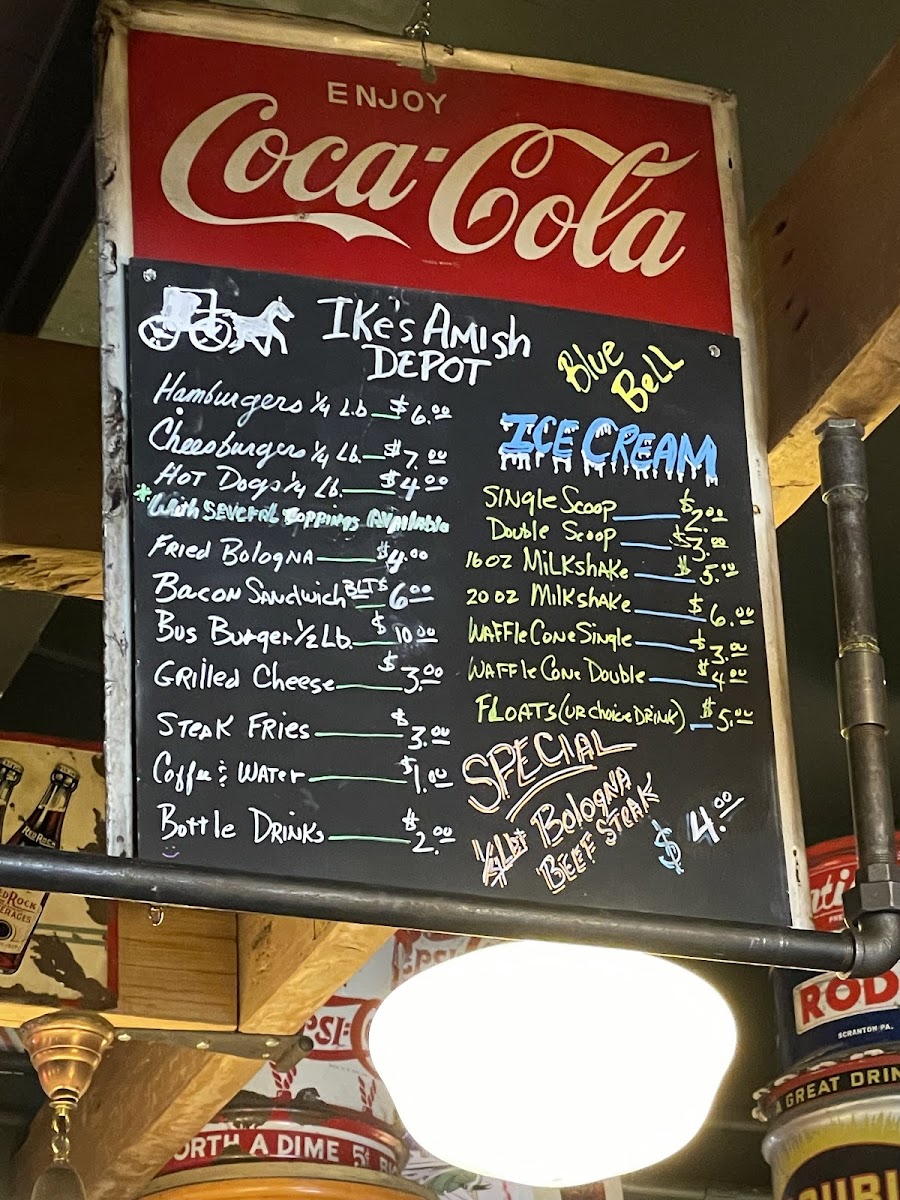 ENJOY
Coca-Cola
IKe's AMisH
DEPOT
Hamburgers 1/4 Lb. $6.00
Cheesburgers 1/4 Lb. $7.00
HOT Dogs 1/4 Lb. $4.00
*With SEVERAL TOPPINGS AVAilable
FRied Bologna $4.00
Bacon Sandwich BLT'S $6.00
Bus Burger 1/2 Lb. $10.00
GRilled Cheese $3.00
STEAK FRies $3.00
Coffee & WATer $1.00
Bottle DRiNKs $2.00
Blue
BeLL
ICE CREAM
SiNgle Scoop $2.00
Double Scoop $3.00
16 OZ MiLKshAKe $5.00
20 OZ MilKshaKe $6.00
WAFFle CoNe SiNgle $3.00
WAFFle CoNe Double $4.00
FLOATS (UR choice DRINK) $5.00
SPECIAL
Bologna
BEEF STEAK $4.00
RED ROCK
EDROCK
ERAGES
EPSI
PSI
ORTH A DIME 5¢
ROD
SCRANTON PA.
A GREAT DRIN